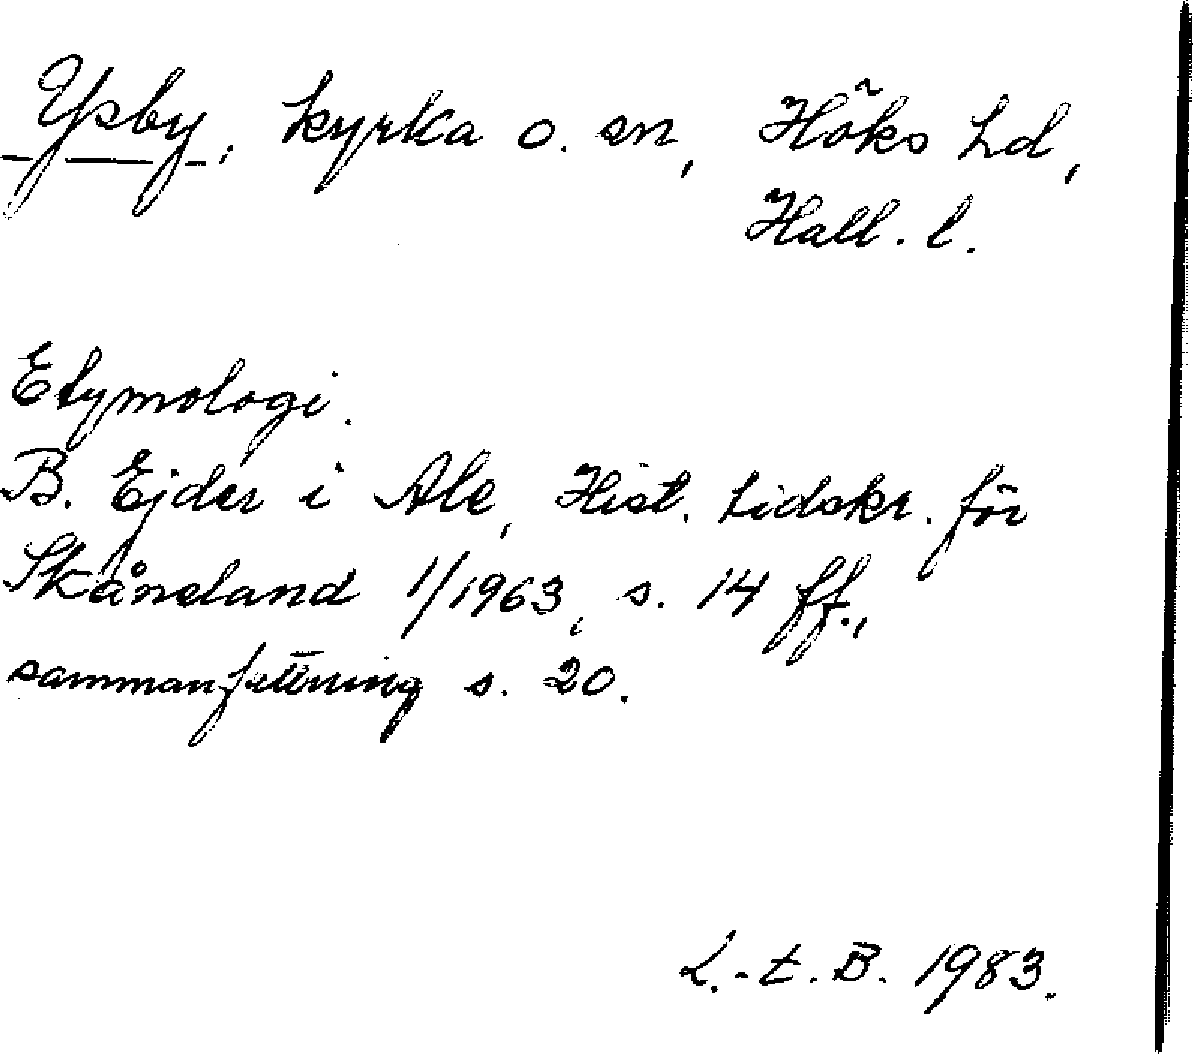 Ysby, kyrka o. sn, Höks hd,
Hall. l.
Etymologi.
B. Ejder i Ale, Hist. tidskr. för
Skåneland 1/1963, s. 14 ff.,
sammanfattning s. 20.
L.-E. B. 1983.